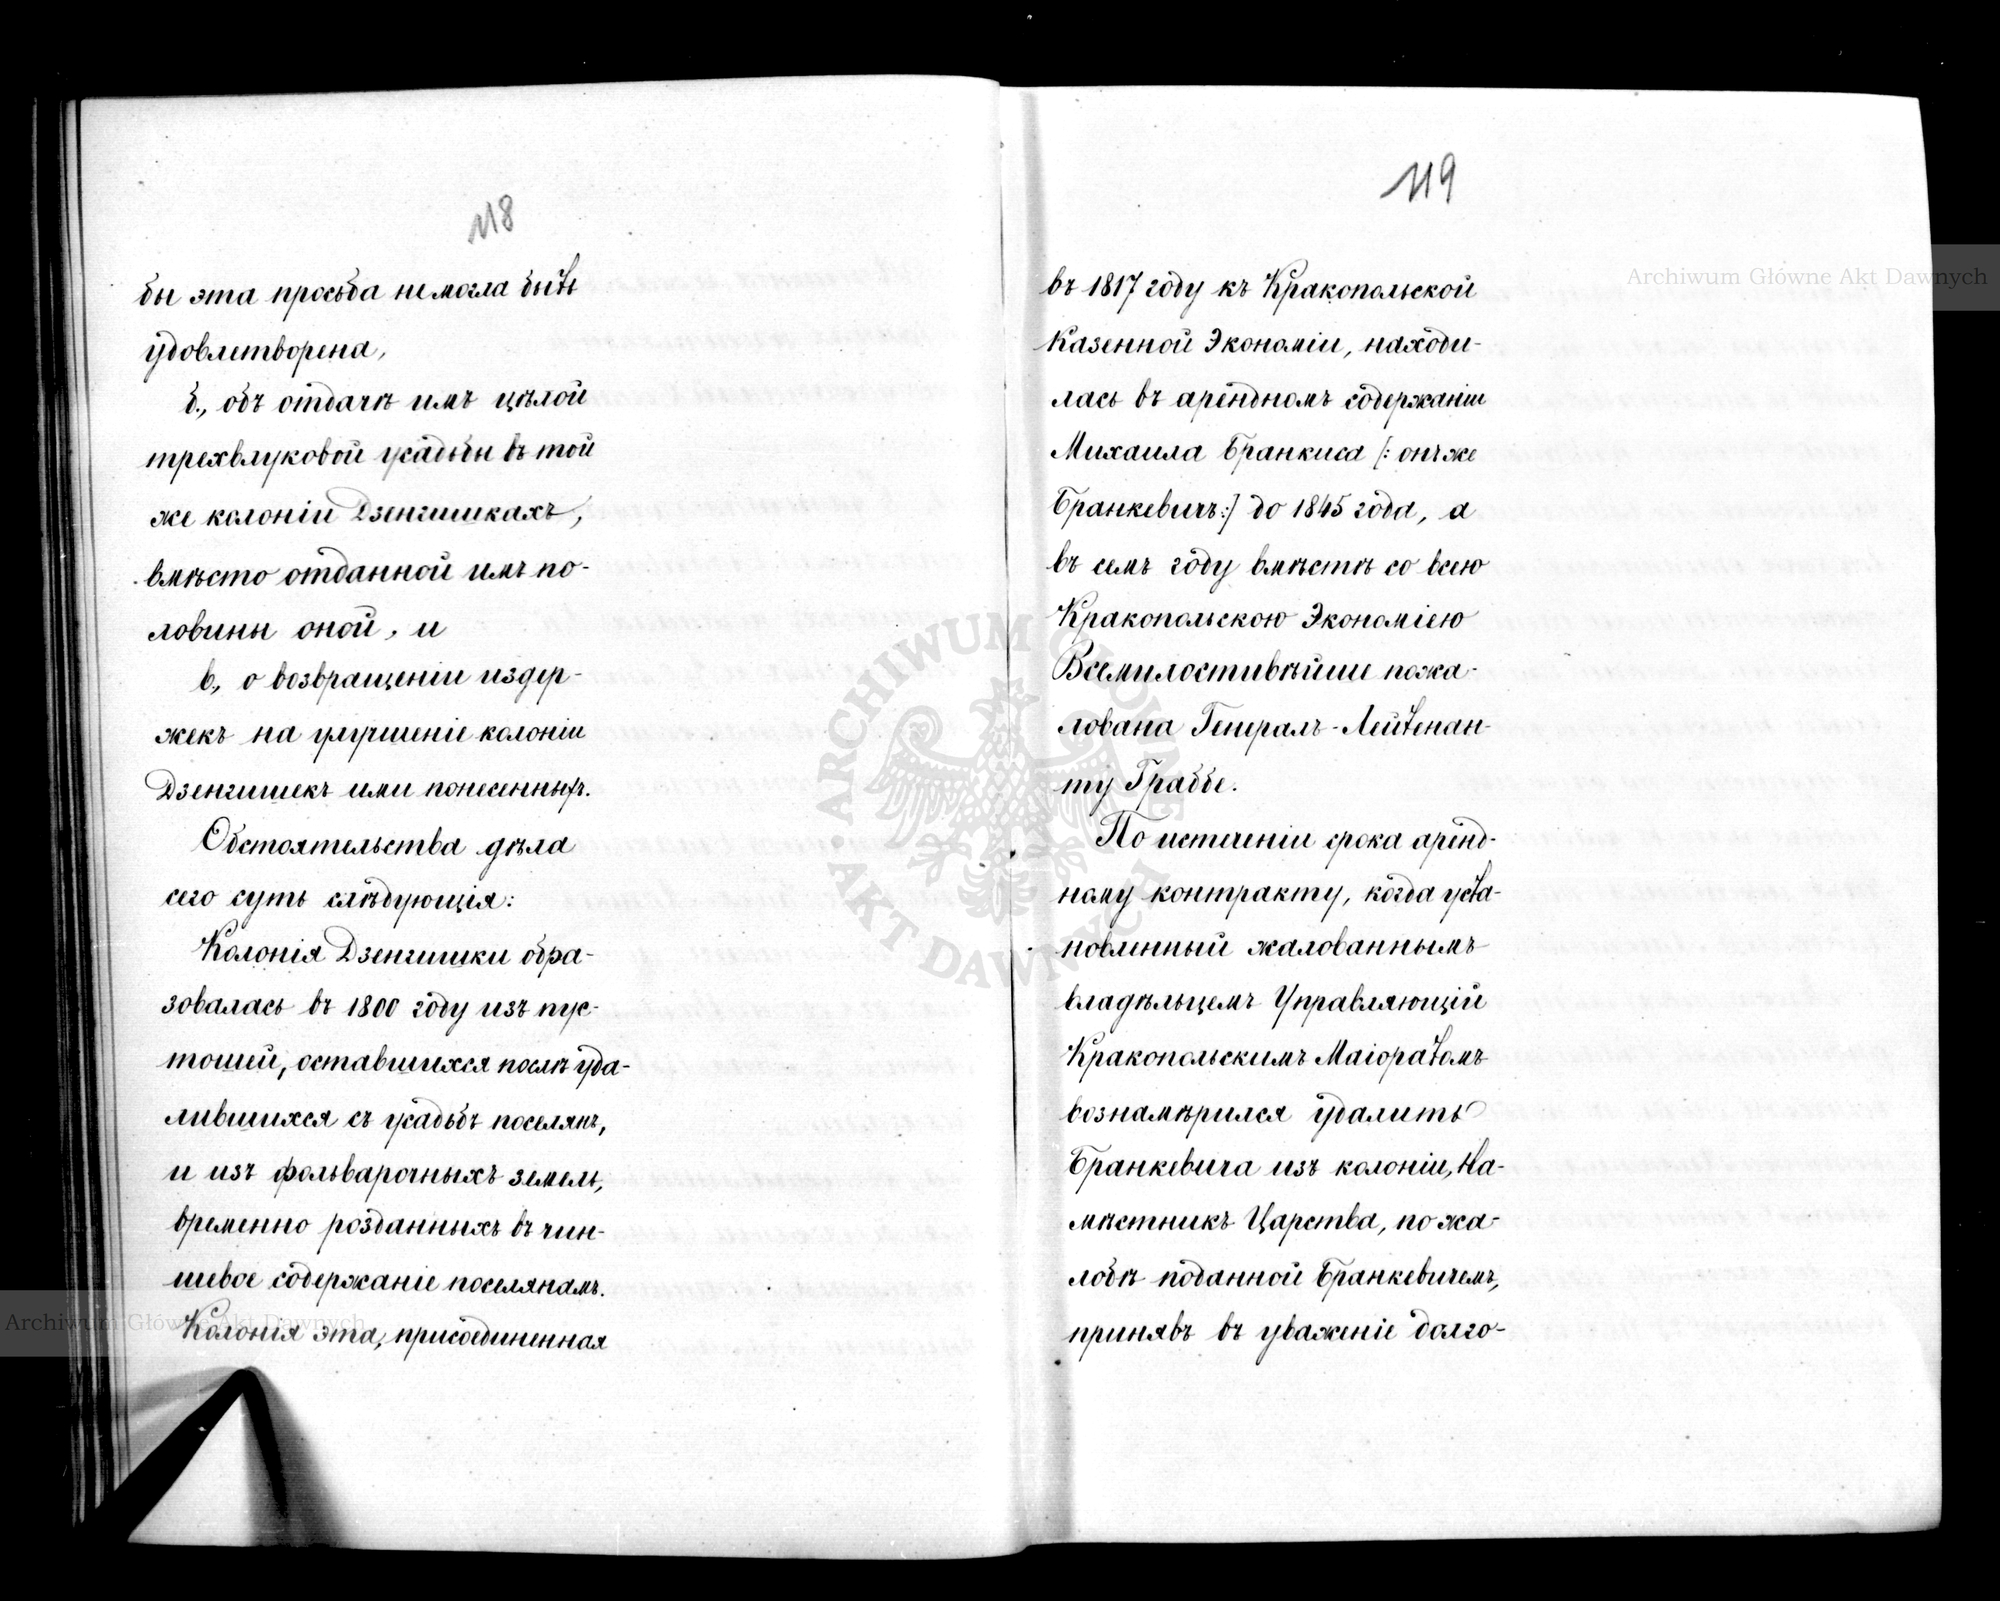 118
бы эта просьба не могла быть
удовлетворена,
б., объ отдачѣ имъ цѣлой
трехвлуковой усадьбы въ той
же колоніи Дзенгишкахъ,
вмѣсто отданной имъ по-
ловины оной, и
в., о возвращеніи издер-
жекъ на улучшеніе колоніи
Дзенгишекъ ими понесенныхъ.
Обстоятельства дѣла
сего суть слѣдующія:
Колонія Дзенгишки обра-
зовалась въ 1800 году изъ пус-
тошей, оставшихся послѣ уда-
лившихся съ усадьбъ поселянъ,
и изъ фольварочныхъ земель,
временно розданныхъ въ чин-
шевое содержаніе поселянамъ.
Колонія эта, присоединенная
119
въ 1817 году къ Кракопольской
Казенной Экономіи, находи-
лась въ арендномъ содержаніи
Михаила Бранкиса [: онъ же
Бранкевичъ:] до 1845 года, а
въ семъ году вмѣстѣ со всею
Кракопольскою Экономіею
Всемилостивѣйше пожа-
лована Генералъ-Лейтенан-
ту Граббе.
По истеченіи срока аренд-
ному контракту, когда уста-
новленный жалованнымъ
владѣльцемъ Управляющій
Кракопольскимъ Маіоратомъ
вознамѣрился удалить
Бранкевича изъ колоніи, На-
мѣстникъ Царства, по жа-
лобѣ поданной Бранкевичемъ,
принявъ въ уваженіе долго-
Archiwum Główne Akt Dawnych
Archiwum Główne Akt Dawnych
ARCHIWUM GŁÓWNE
AKT DAWNYCH